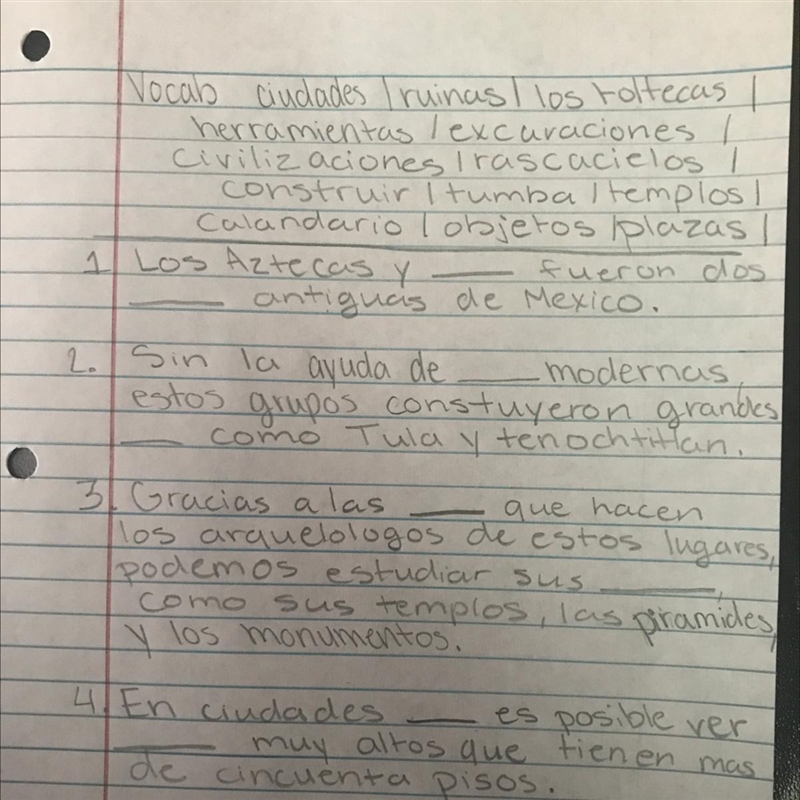 Vocab ciudades / ruinas / los toltecas /
herramientas / excavaciones /
civilizaciones / rascacielos /
construir / tumba / templos /
calandario / objetos / plazas /
1 Los Aztecas y ____ fueron dos
____ antiguas de Mexico.
2. Sin la ayuda de ____ modernas,
estos grupos constuyeron grandes
____ como Tula y tenochtitlan.
3. Gracias a las ____ que hacen
los arquelologos de estos lugares,
podemos estudiar sus ____,
como sus templos, las piramides,
y los monumentos.
4. En ciudades ____ es posible ver
____ muy altos que tienen mas
de cincuenta pisos.